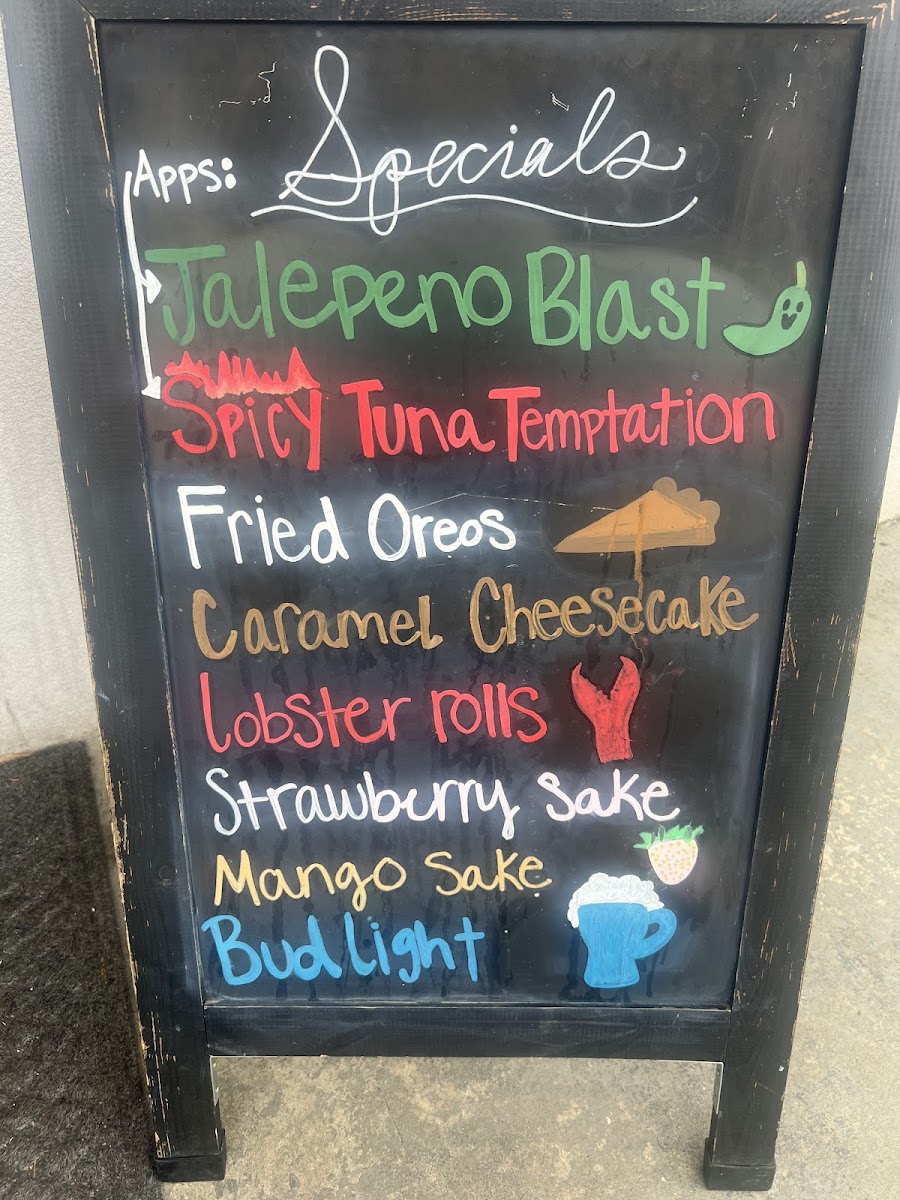 Specials
Apps:
Jalepeno Blast
Spicy Tuna Temptation
Fried Oreos
Caramel Cheesecake
Lobster rolls
Strawburry Sake
Mango Sake
Bud light